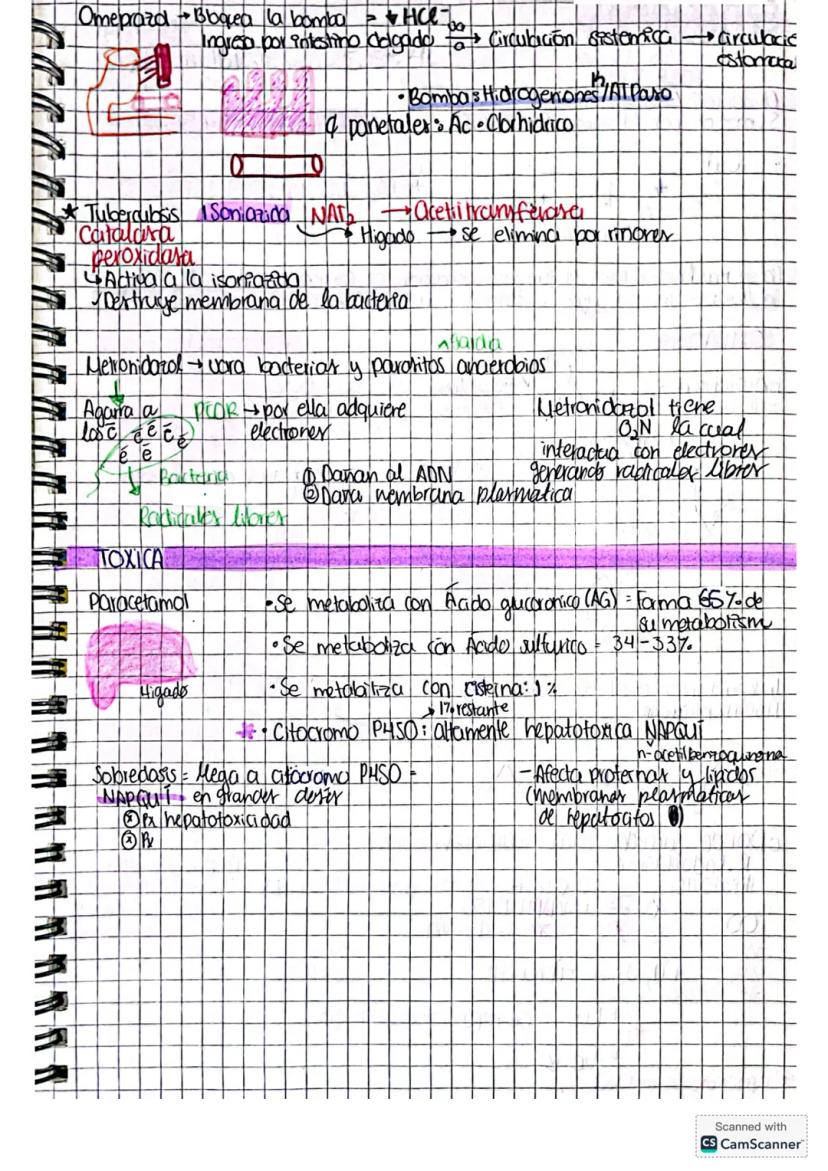 Omeprazol → Bloquea la bomba = ↓ HCl-
Ingreso por intestino delgado → Circulación sistemica → circulació
estomacal
• Bomba: Hidrogeniones /ATPasa
parietales: Ac. Clorhidrico
★ Tuberculosis Isoniazida NAT2 → Acetiltransferasa
Catalasa Higado → se elimina por riñores
peroxidasa
↳ Activa a la isoniazida
✓ Destruye membrana de la bacteria
Metronidazol → vara bacterias y parasitos anaerobios
Agarra a PFOR → por ella adquiere
los ē electrones
ē ē ē é
é ē
Bacteria
Radicales libres
① Dañan al ADN
② Daña membrana plasmatica
Metronidazol tiene
O2N la cual
interactua con electrores
generando radicales libres
TOXICA
Paracetamol
Higado
• Se metaboliza con Ácido glucoronico (AG) = Forma 65% de
su metabolism
• Se metaboliza con Acido sulfurico = 34-33%
• Se metabiliza con cisteina: 1%
→ 1% restante
* • Citocromo P450: altamente hepatotoxica NAPQUI
n-acetilbenzoquinona
Sobredosis = llega a citocromo P450 =
NAPQUI en grandes dosis
Px hepatotoxicidad
Px
- Afecta proteinas y lipidos
(membranas plasmaticas
de hepatocitos)
Scanned with
CS CamScanner